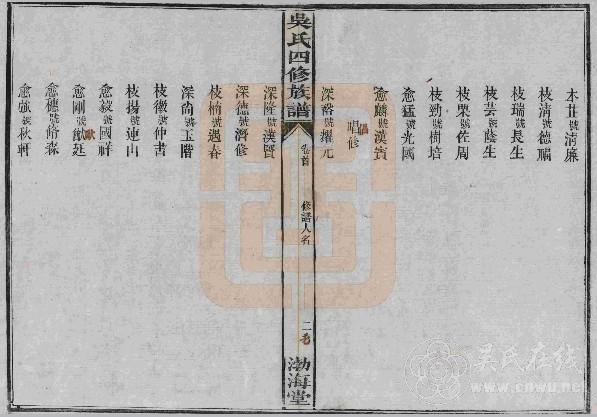 本廿號清廉
枝清號德驌
枝瑞號長生
枝芸號蔭生
枝栗號佐周
枝勁號樹培
愈猛號光國
愈麟號漢賓
倡修
深裕號耀元
吳氏四修族譜
卷首
修譜人名
二
渤海堂
深隆號漢賢
深德號濟修
枝楠號遇春
深尚號玉階
枝徽號仲書
枝揚號連山
愈毅號國祥
愈剛號獻廷
愈穗號脩森
愈強號秋軒
吳氏在线
www.cnwu.net